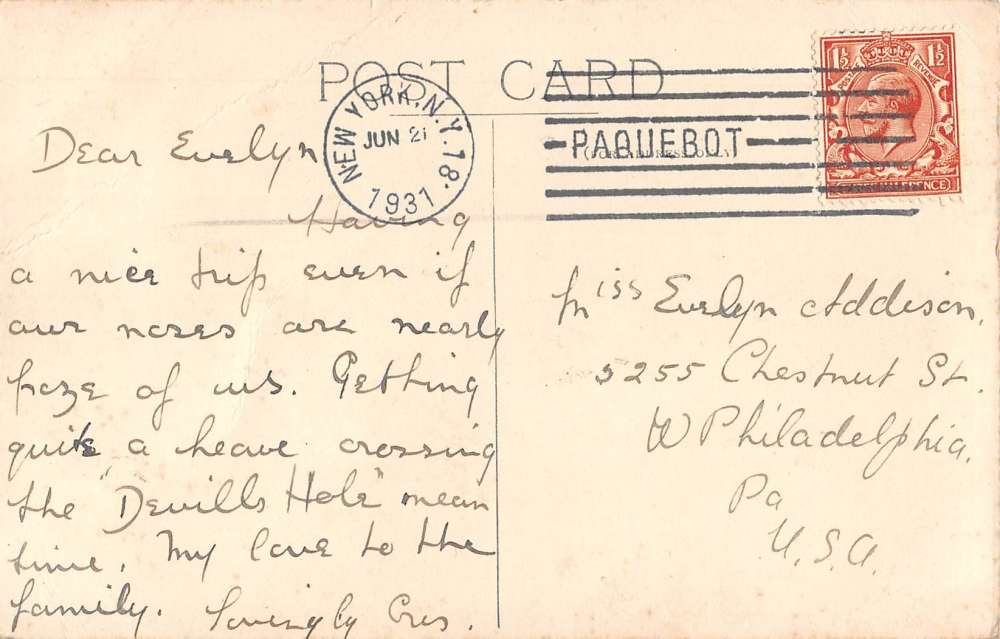 POST CARD
NEW YORK, N.Y. 18.
JUN 21
1931
PAQUEBOT
1½ 1½
POSTAGE REVENUE
Dear Evelyn
Having
a nice trip even if
our noses are nearly
froze of us. Getting
quite a heave crossing
the "Devills Hole" mean
time. My love to the
family. Lovingly
Miss Evelyn Addison.
5255 Chestnut St.
W Philadelphia.
Pa
U.S.A.